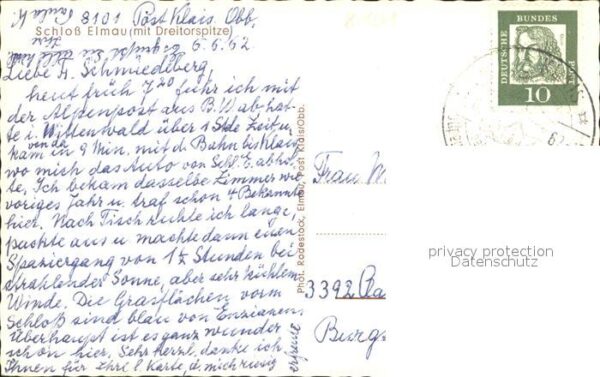 8101 Post Klais Obb.
Schloß Elmau (mit Dreitorspitze)
6.6.62
Liebe Fr. Schmiedeberg
heut früh 7 20 fuhr ich mit
der Alpenpost aus B.W. ab, hat-
te i. Mittenwald über 1 Stde Zeit u.
kam in 9 Min. mit d. Bahn bis Klais,
wo mich das Auto von Schl. E. abhol-
te. Ich bekam dasselbe Zimmer wie
voriges Jahr u. traf schon 4 Bekannte
hier. Nach Tisch ruhte ich lange,
packte aus u. machte dann einen
Spaziergang von 1½ Stunden bei
strahlender Sonne, aber sehr kühlem
Winde. Die Grasflächen vorm
Schloß sind blau von Enzianen.
Überhaupt ist es ganz wunder
schön hier. Sehr herzl. danke ich
Ihnen für Ihre l. Karte, d. mich riesig
erfreute
Phot. Rodestock, Elmau, Post Klais/Obb.
DEUTSCHE
BUNDES
POST
10
Frau M
3392
Burg
privacy protection
Datenschutz